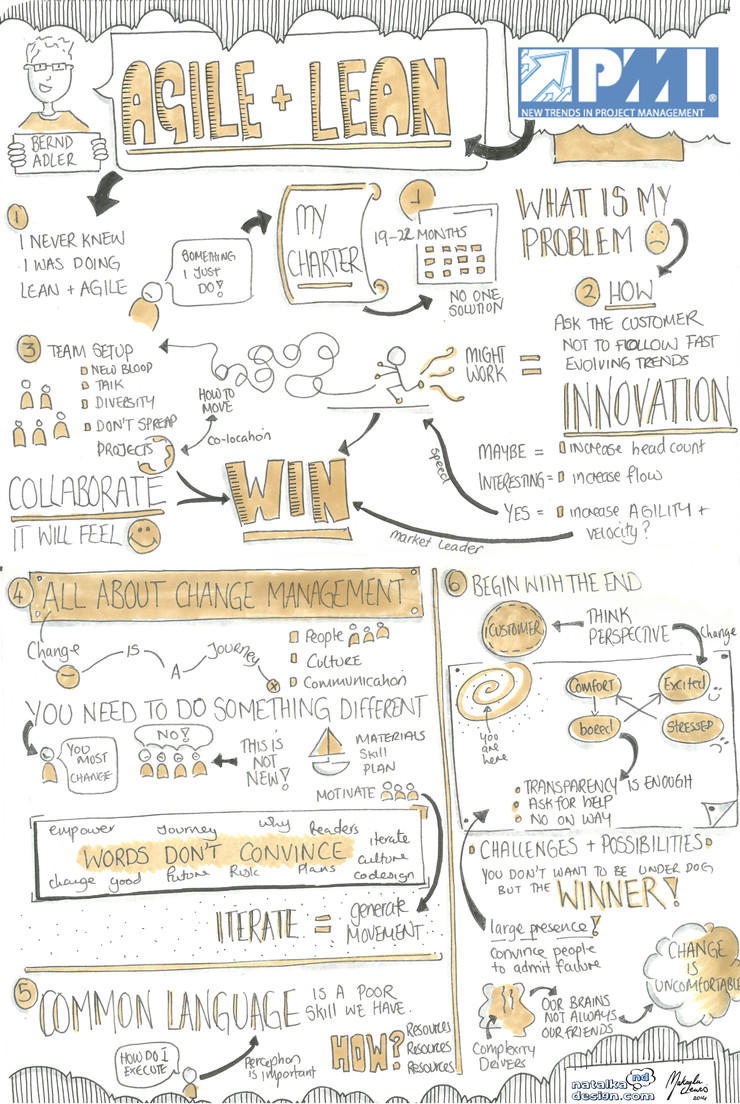 BERND
ADLER
AGILE + LEAN
PMI®
NEW TRENDS IN PROJECT MANAGEMENT
1
I NEVER KNEW
I WAS DOING
LEAN + AGILE
SOMETHING
I JUST
DO!
MY
CHARTER
19-22 MONTHS
NO ONE
SOLUTION
WHAT IS MY
PROBLEM
2 HOW
ASK THE CUSTOMER
NOT TO FOLLOW FAST
EVOLVING TRENDS
3 TEAM SETUP
NEW BLOOD
TALK
DIVERSITY
DON'T SPREAD
PROJECTS
HOW TO
MOVE
CO-location
MIGHT
WORK
=
INNOVATION
MAYBE = increase head count
INTERESTING = increase flow
YES = increase AGILITY +
velocity?
speed
market leader
COLLABORATE
IT WILL FEEL
WIN
4 ALL ABOUT CHANGE MANAGEMENT
Change IS A Journey
People
CULTURE
Communication
YOU NEED TO DO SOMETHING DIFFERENT
YOU
MOST
CHANGE
NO!
THIS IS
NOT
NEW!
MATERIALS
SKILL
PLAN
MOTIVATE
empower Journey Why Leaders
iterate
WORDS DON'T CONVINCE
culture
change good Future Risk Plans codesign
ITERATE = generate
MOVEMENT
5 COMMON LANGUAGE IS A POOR
SKILL WE HAVE.
HOW DO I
EXECUTE
Perception
IS important
HOW?
Resources
Resources
Resources
6 BEGIN WITH THE END
CUSTOMER
THINK
PERSPECTIVE
Change
YOU
are
here
COMFORT
Excited
bored
STRESSED
TRANSPARENCY IS ENOUGH
ASK FOR HELP
NO ON WAY
CHALLENGES + POSSIBILITIES
YOU DON'T WANT TO BE UNDER DOG
BUT THE WINNER!
large presence!
convince people
to admit failure
OUR BRAINS
NOT ALWAYS
OUR FRIENDS
Complexity
DRIVERS
CHANGE
IS
UNCOMFORTABLE
natalka nd
design.com
Makayla
Lewis
2014